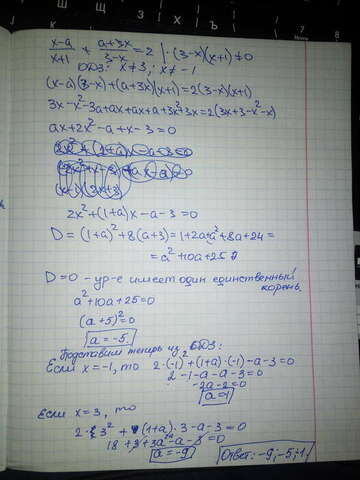 x-a/x+1 + a+3x/3-x = 2 | ·(3-x)(x+1) ≠ 0
ОДЗ: x ≠ 3; x ≠ -1
(x-a)(3-x)+(a+3x)(x+1)=2(3-x)(x+1)
3x-x²-3a+ax+ax+a+3x²+3x=2(3x+3-x²-x)
ax+2x²-a+x-3=0
2x²+(1+a)x-a-3=0
D=(1+a)²+8(a+3)=1+2a+a²+8a+24=
=a²+10a+25
D=0 - ур-е имеет один единственный
корень.
a²+10a+25=0
(a+5)²=0
a=-5.
Подставим теперь из ОДЗ:
Если x=-1, то 2·(-1)²+(1+a)·(-1)-a-3=0
2-1-a-a-3=0
-2a-2=0
a=-1
Если x=3, то
2·3²+(1+a)·3-a-3=0
18+3+3a-a-3=0
a=-9
Ответ: -9; -5; -1.